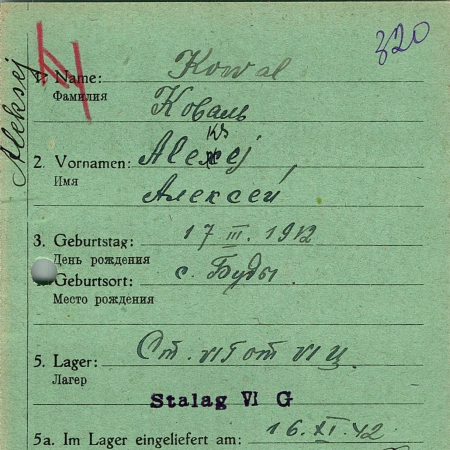 320
Aleksej
1. Name: Kowal
Фамилия
Коваль
2. Vornamen: Alexej, ks
Имя
Алексей
3. Geburtstag: 17 III. 1912
День рождения
Geburtsort: с. Буды
Место рождения
5. Lager: Ст. VIГ от VI Ц.
Лагерь
Stalag VI G
5a. Im Lager eingeliefert am: 16. XI. 42